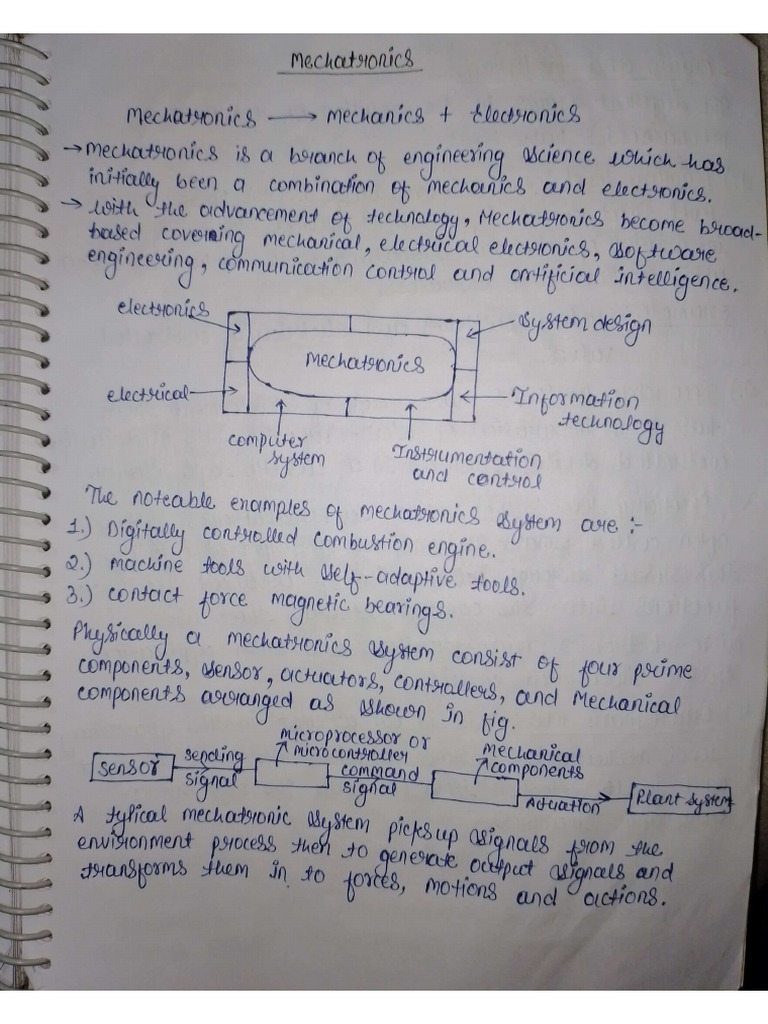 Mechatronics
Mechatronics → Mechanics + Electronics
→ Mechatronics is a branch of engineering science which has
initially been a combination of mechanics and electronics.
→ with the advancement of technology, Mechatronics become broad-
based covering mechanical, electrical electronics, software
engineering, communication control and artificial intelligence.
electronics
System design
Mechatronics
electrical
Information
technology
computer
system
Instrumentation
and control
The noteable examples of mechatronics system are :-
1.) Digitally controlled combustion engine.
2.) machine tools with self-adaptive tools.
3.) contact force magnetic bearings.
Physically a mechatronics system consist of four prime
components, sensor, actuators, controllers, and Mechanical
components arranged as shown in fig.
microprocessor or
microcontroller
mechanical
components
sensor
sending
signal
command
signal
Actuation
Plant system
A typical mechatronic system picks up signals from the
environment process then to generate output signals and
transforms them in to forces, motions and actions.